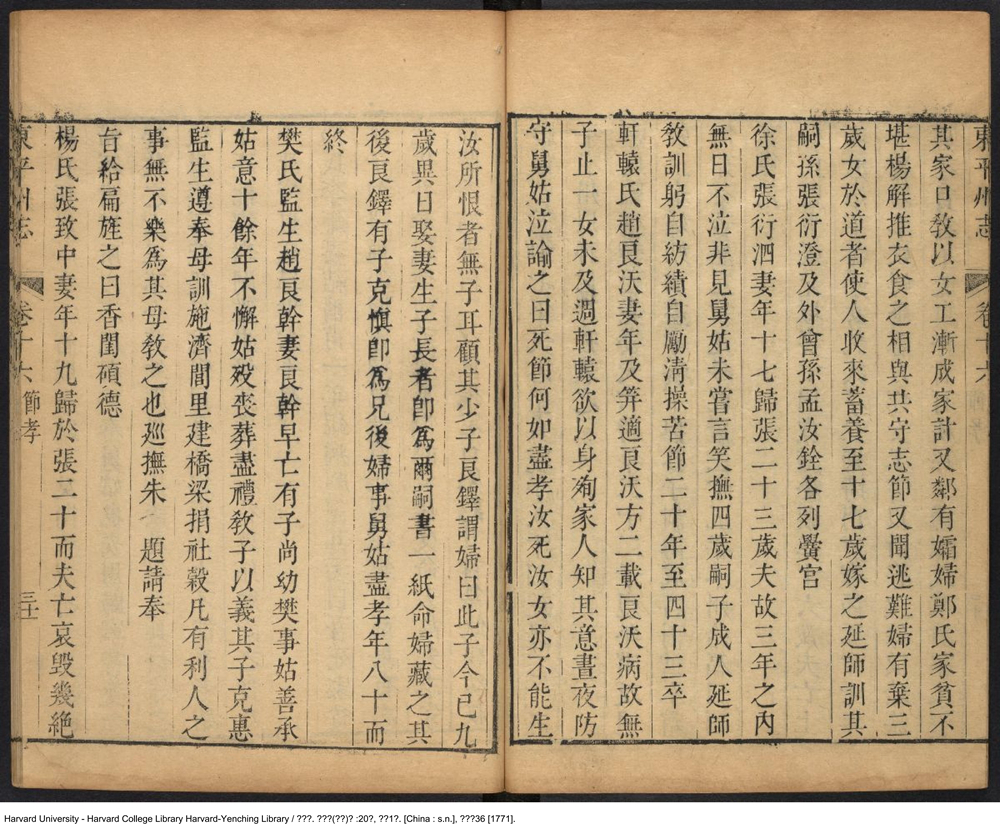 東平州志 卷十六
其家口敎以女工漸成家計又鄰有孀婦鄭氏家貧不
堪楊解推衣食之相與共守志節又聞逃難婦有棄三
歲女於道者使人收來蓄養至十七歲嫁之延師訓其
嗣孫張衍澄及外曾孫孟汝銓各列黌宮
徐氏張衍泗妻年十七歸張二十三歲夫故三年之內
無日不泣非見舅姑未嘗言笑撫四歲嗣子成人延師
敎訓躬自紡績自勵凊操苦節二十年至四十三卒
軒轅氏趙良沃妻年及笄適良沃方二載良沃病故無
子止一女未及週軒轅欲以身殉家人知其意晝夜防
守舅姑泣諭之曰死節何如盡孝汝死汝女亦不能生
汝所恨者無子耳顧其少子良鐸謂婦曰此子今已九
歲異日娶妻生子長者卽為爾嗣書一紙命婦藏之其
後良鐸有子克愼卽為兄後婦事舅姑盡孝年八十而
終
樊氏監生趙良幹妻良幹早亡有子尚幼樊事姑善承
姑意十餘年不懈姑歿丧葬盡禮敎子以義其子克惠
監生遵奉母訓施濟閭里建橋梁捐社穀凡有利人之
事無不樂為其母敎之也廵撫朱 題請奉
旨給扁旌之曰香閨碩德
楊氏張致中妻年十九歸於張二十而夫亡哀毀幾絶
東平州志 卷十六 節孝 三十
Harvard University - Harvard College Library Harvard-Yenching Library / ???. ???(??)? :20?, ??1?. [China : s.n.], ???36 [1771].